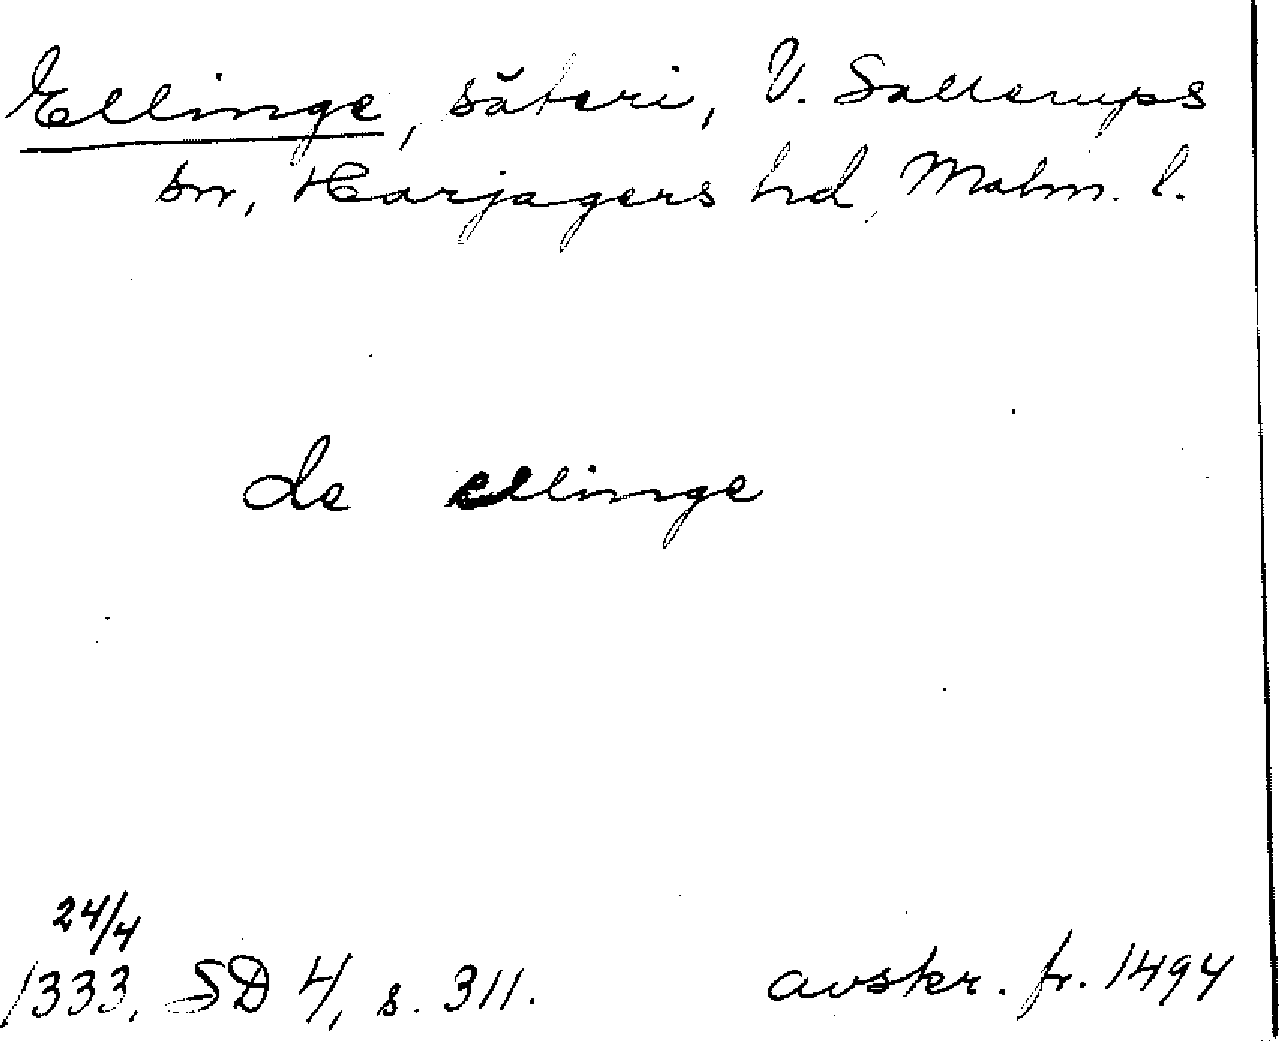 Ellinge, säteri, V. Sallerups
sn, Harjagers hd, Malm. l.
de ellinge
24/4
1333, SD 4, s. 311.
avskr. fr. 1494